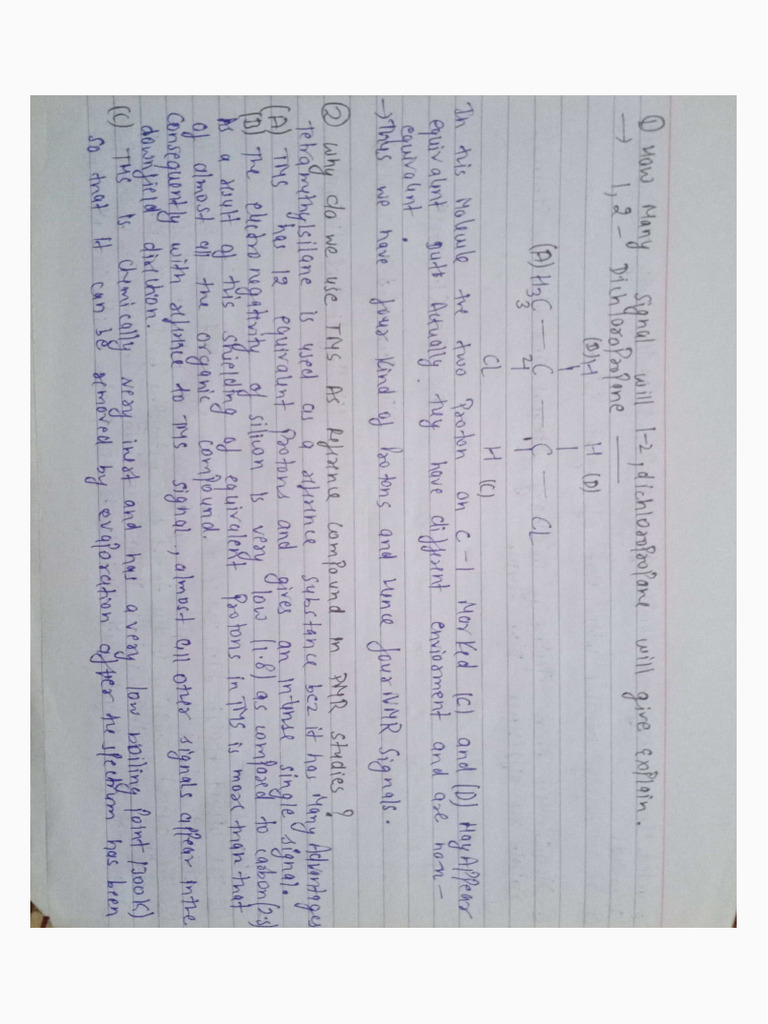 ① How Many signal will 1-2, dichloropropane will give explain.
→ 1, 2 - Dichloropropane
(B)H H (D)
(A) H3C — C — C — CL
3 2
Cl H (C)
In this Molecule the two Proton on C-1 Marked (C) and (D) May Appear
equivalent Butt Actually they have different enviorment and are non-
equivalent.
→ Thus we have four kind of Protons and hence four NMR Signals.
② Why do we use TMS As Refrence Compound in PMR studies?
Tetramethylsilane is used as a refrence substance bcz it has Many Advantages
(A) TMS has 12 equivalent Protons and gives an intense single signal.
(B) The electronegativity of silicon is very low (1.8) as compared to carbon (2.5)
As a result of this shielding of equivalent Protons in TMS is more than that
of almost all the organic compound.
Consequently with refrence to TMS signal, almost all other signals appear in the
downfield direction.
(C) TMS is chemically very inert and has a very low boiling point (300K)
so that it can be removed by evaporation after the spectrum has been